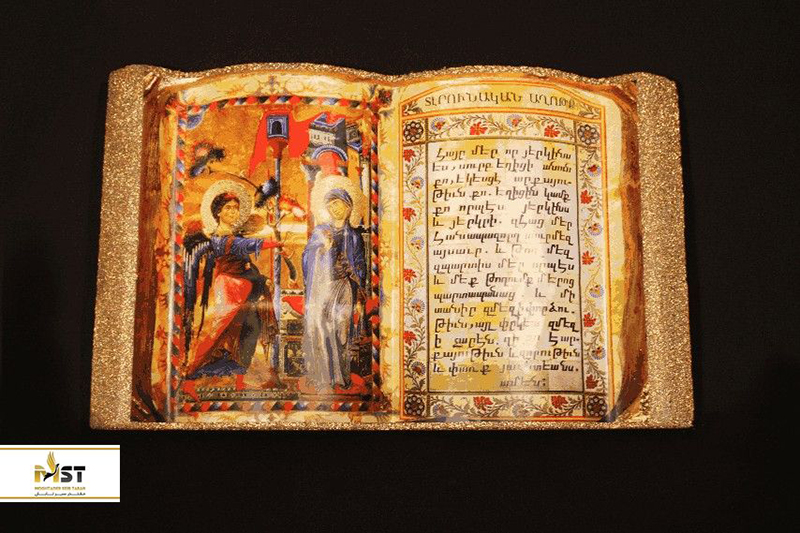 ՏԷՐՈՒՆԱԿԱՆ ԱՂՕԹՔ
Հայր մեր որ յերկինս
ես, սուրբ եղիցի անուն
քո, եկեսցէ արքայու-
թիւն քո. եղիցին կամք
քո որպէս յերկինս
և յերկրի. զհաց մեր
հանապազորդ տուր մեզ
այսաւր. և թող մեզ
զպարտիս մեր որպէս
և մեք թողումք մերոց
պարտապանաց և մի
տանիր զմեզ ի փորձու-
թիւն, այլ փրկեա զմեզ
ի չարէն. զի քո է ար-
քայութիւն և զօրութիւն
և փառք յաւիտեանս.
ամէն:
MST